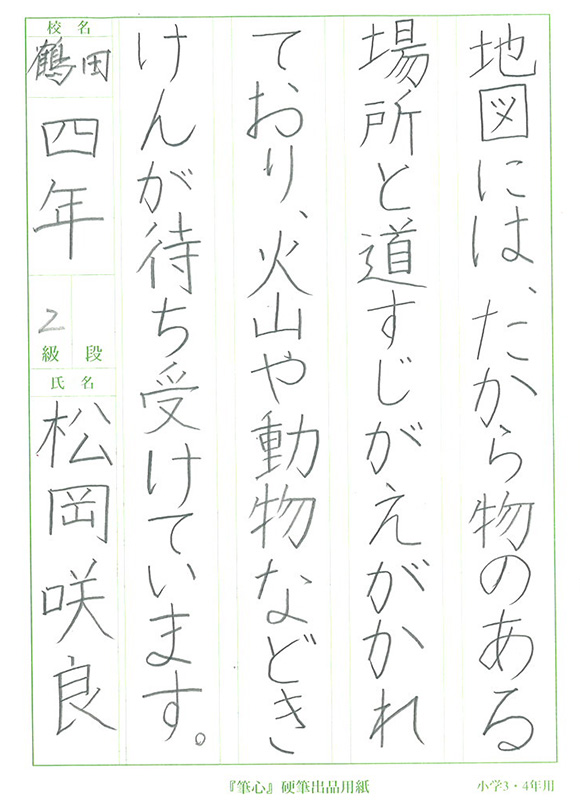 地図には、たから物のある
場所と道すじがえがかれ
ており、火山や動物などき
けんが待ち受けています。
校名
鶴田
四年
2
級 段
氏名
松岡咲良
『筆心』硬筆出品用紙
小学3・4年用